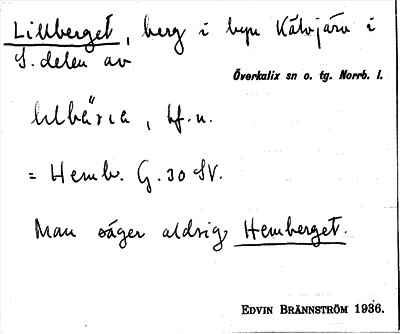 Lillberget, berg i byn Kälvjärv i
S. delen av
Överkalix sn o. tg. Norrb. l.
bf. n.
= Hemb. G. 30 SV.
Man säger aldrig Hemberget.
EDVIN BRÄNNSTRÖM 1936.